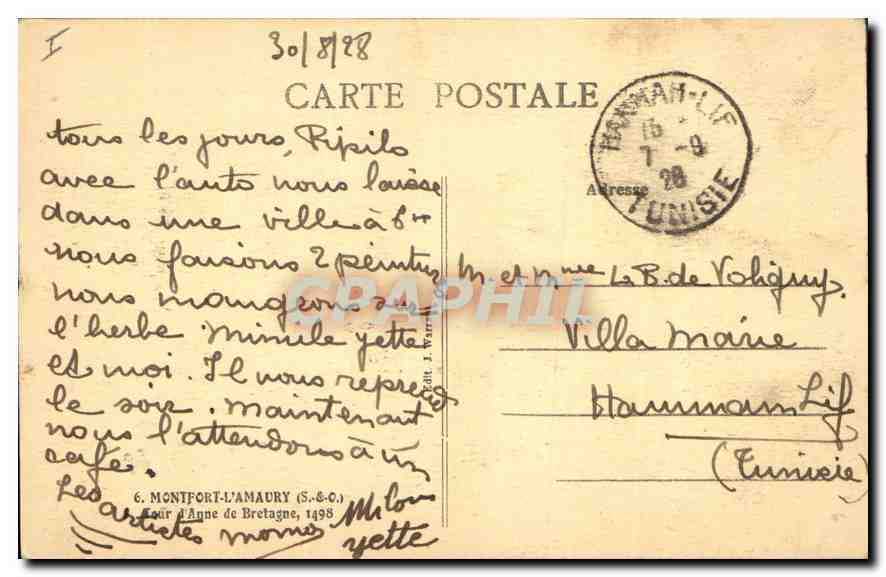 I
30/8/28
CARTE POSTALE
HAMMAM-LIF
15
7 -9
28
TUNISIE
Adresse
tous les jours, Pipilo
avec l'auto nous laisse
dans une ville à
nous faisons 2 peintures
nous mangeons sur
l'herbe. Yette
et moi. Il nous reprend
le soir. Maintenant
nous l'attendons à un
café.
Les artistes momo
Milou
yette
M. et Mme L. B. de Voligny.
Villa Marie
Hammam Lif
(Tunisie)
GRAPHIL
Edit. J.
6. MONTFORT-L'AMAURY (S.-&-O.)
Tour d'Anne de Bretagne, 1498